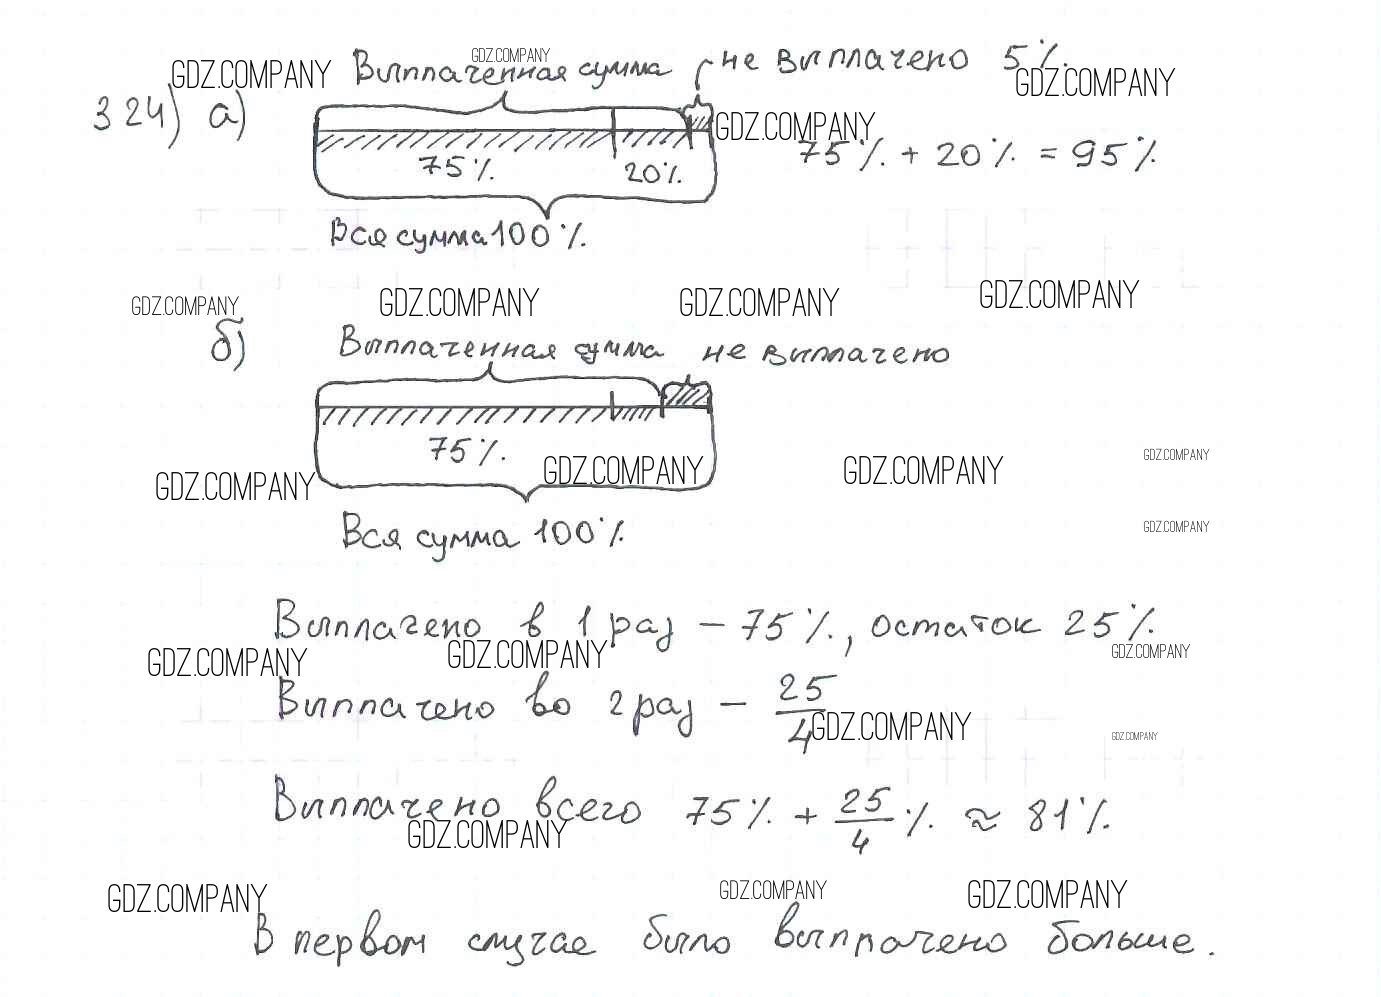 GDZ.COMPANY
Выплаченная сумма не выплачено 5%.
GDZ.COMPANY GDZ.COMPANY
324) а)
GDZ.COMPANY
75% + 20% = 95%
75%. 20%.
Вся сумма 100%.
GDZ.COMPANY GDZ.COMPANY GDZ.COMPANY GDZ.COMPANY
б) Выплаченная сумма не выплачено
75%.
GDZ.COMPANY GDZ.COMPANY GDZ.COMPANY GDZ.COMPANY
Вся сумма 100%.
GDZ.COMPANY
Выплачено в 1 раз – 75%, остаток 25%.
GDZ.COMPANY GDZ.COMPANY GDZ.COMPANY
Выплачено во 2 раз – 25/4
GDZ.COMPANY GDZ.COMPANY
Выплачено всего 75% + 25/4 % ≈ 81%.
GDZ.COMPANY
GDZ.COMPANY GDZ.COMPANY GDZ.COMPANY
В первом случае было выплачено больше.